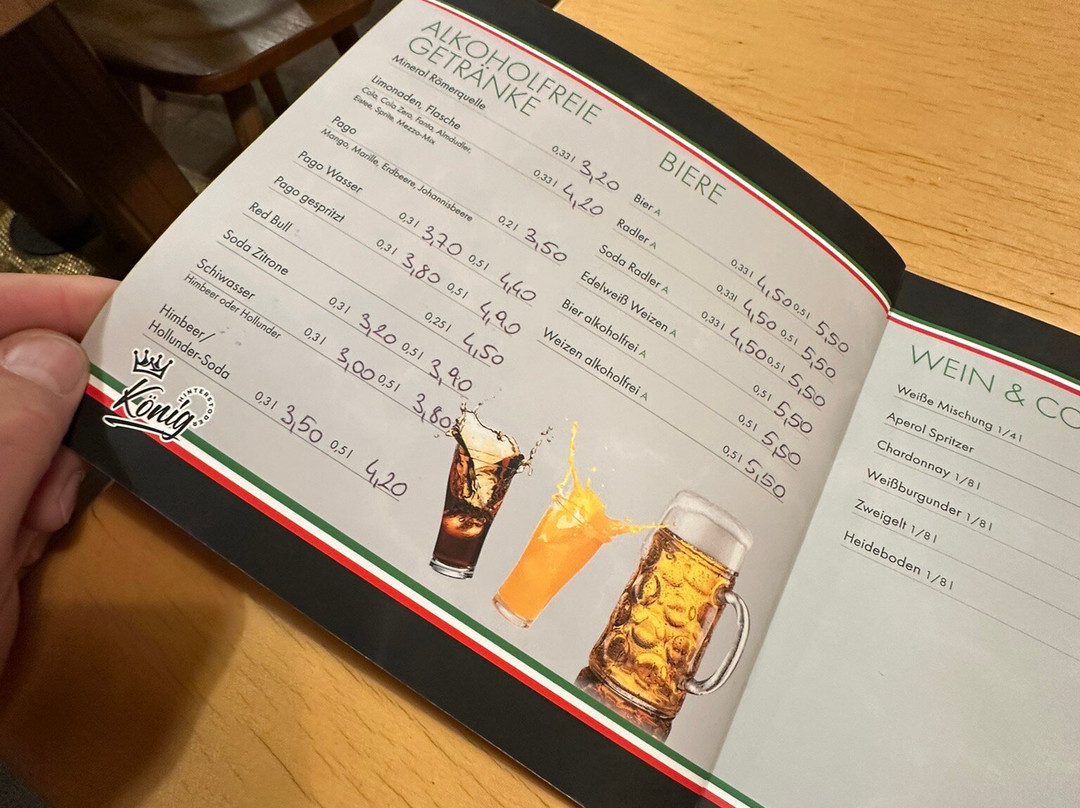 ALKOHOLFREIE
GETRÄNKE
Mineral Römerquelle 0,33 l 3,20
Limonaden, Flasche 0,33 l 4,20
Cola, Cola Zero, Fanta, Almdudler,
Eistee, Sprite, Mezzo-Mix
Pago 0,2 l 3,50
Mango, Marille, Erdbeere, Johannisbeere
Pago Wasser 0,3 l 3,70 0,5 l 4,40
Pago gespritzt 0,3 l 3,80 0,5 l 4,90
Red Bull 0,25 l 4,50
Soda Zitrone 0,3 l 3,20 0,5 l 3,90
Schiwasser 0,3 l 3,00 0,5 l 3,80
Himbeer oder Hollunder
Himbeer/
Hollunder-Soda 0,3 l 3,50 0,5 l 4,20
König
HINTERSTODER
BIERE
Bier A 0,33 l 4,50 0,5 l 5,50
Radler A 0,33 l 4,50 0,5 l 5,50
Soda Radler A 0,33 l 4,50 0,5 l 5,50
Edelweiß Weizen A 0,5 l 5,50
Bier alkoholfrei A 0,5 l 5,50
Weizen alkoholfrei A 0,5 l 5,50
WEIN & CO
Weiße Mischung 1/4 l
Aperol Spritzer
Chardonnay 1/8 l
Weißburgunder 1/8 l
Zweigelt 1/8 l
Heideboden 1/8 l